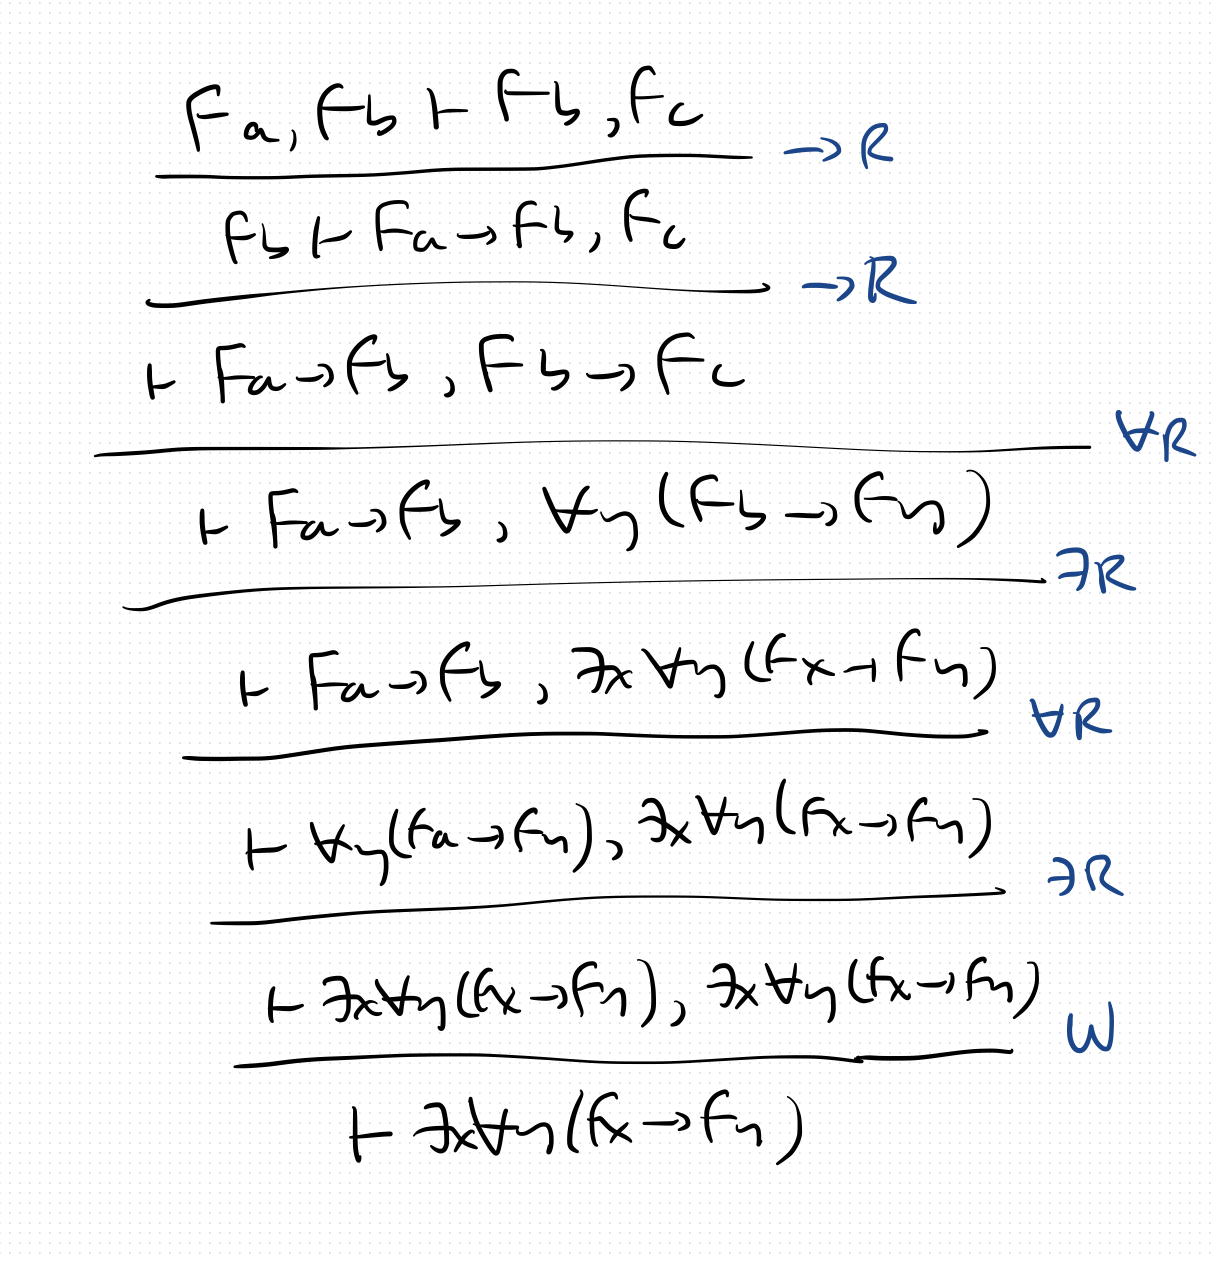 Fa, Fb ⊢ Fb, Fc
→R
Fb ⊢ Fa → Fb, Fc
→R
⊢ Fa → Fb, Fb → Fc
∀R
⊢ Fa → Fb, ∀y(Fb → Fy)
∃R
⊢ Fa → Fb, ∃x∀y(Fx → Fy)
∀R
⊢ ∀y(Fa → Fy), ∃x∀y(Fx → Fy)
∃R
⊢ ∃x∀y(Fx → Fy), ∃x∀y(Fx → Fy)
W
⊢ ∃x∀y(Fx → Fy)